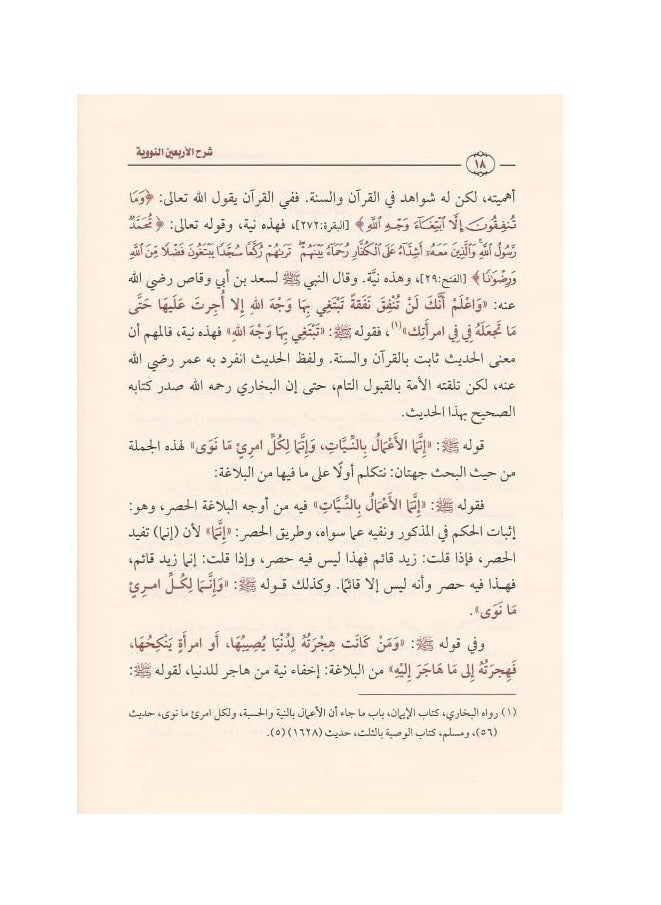 شرح الأربعين النووية
١٨
أهميته، لكن له شواهد في القرآن والسنة. ففي القرآن يقول الله تعالى: ﴿وَمَا
تُنفِقُونَ إِلَّا ٱبْتِغَآءَ وَجْهِ ٱللَّهِ﴾ [البقرة:٢٧٢]، فهذه نية، وقوله تعالى: ﴿مُّحَمَّدٌ
رَّسُولُ ٱللَّهِ وَٱلَّذِينَ مَعَهُۥٓ أَشِدَّآءُ عَلَى ٱلْكُفَّارِ رُحَمَآءُ بَيْنَهُمْ تَرَىٰهُمْ رُكَّعًا سُجَّدًا يَبْتَغُونَ فَضْلًا مِّنَ ٱللَّهِ
وَرِضْوَٰنًا﴾ [الفتح:٢٩]، وهذه نيَّة. وقال النبي ﷺ لسعد بن أبي وقاص رضي الله
عنه: «وَاعْلَم أَنَّكَ لَنْ تُنْفِقَ نَفَقَةً تَبْتَغِي بِهَا وَجْهَ اللهِ إِلا أُجِرتَ عَلَيهَا حَتَّى
مَا تَجعَلَهُ فِي فِي امرأَتِك»(١)، فقوله ﷺ: «تَبْتَغِي بِهَا وَجْهَ اللهِ» فهذه نية، فالمهم أن
معنى الحديث ثابت بالقرآن والسنة. ولفظ الحديث انفرد به عمر رضي الله
عنه، لكن تلقته الأمة بالقبول التام، حتى إن البخاري رحمه الله صدر كتابه
الصحيح بهذا الحديث.
قوله ﷺ: «إِنَّمَا الأَعْمَالُ بِالنِّـيَّاتِ، وَإِنَّمَا لِكُلِّ امرِئٍ مَا نَوَى» لهذه الجملة
من حيث البحث جهتان: نتكلم أولًا على ما فيها من البلاغة:
فقوله ﷺ: «إِنَّمَا الأَعْمَالُ بِالنِّـيَّاتِ» فيه من أوجه البلاغة الحصر، وهو:
إثبات الحكم في المذكور ونفيه عما سواه، وطريق الحصر: «إِنَّمَا» لأن (إنما) تفيد
الحصر، فإذا قلت: زيد قائم فهذا ليس فيه حصر، وإذا قلت: إنما زيد قائم،
فهـذا فيه حصر وأنه ليس إلا قائمًا. وكذلك قـوله ﷺ: «وَإِنَّـمَا لِكُـلِّ امـرِئٍ
مَا نَوَى».
وفي قوله ﷺ: «وَمَنْ كَانَت هِجْرَتُهُ لِدُنْيَا يُصِيبُهَا، أَو امرأَةٍ يَنْكِحُهَا،
فَهِجرَتُهُ إِلى مَا هَاجَرَ إِلَيْهِ» من البلاغة: إخفاء نية من هاجر للدنيا، لقوله ﷺ:
(١) رواه البخاري، كتاب الإيمان، باب ما جاء أن الأعمال بالنية والحسبة، ولكل امرئ ما نوى، حديث
(٥٦)، ومسلم، كتاب الوصية بالثلث، حديث (١٦٢٨)(٥).